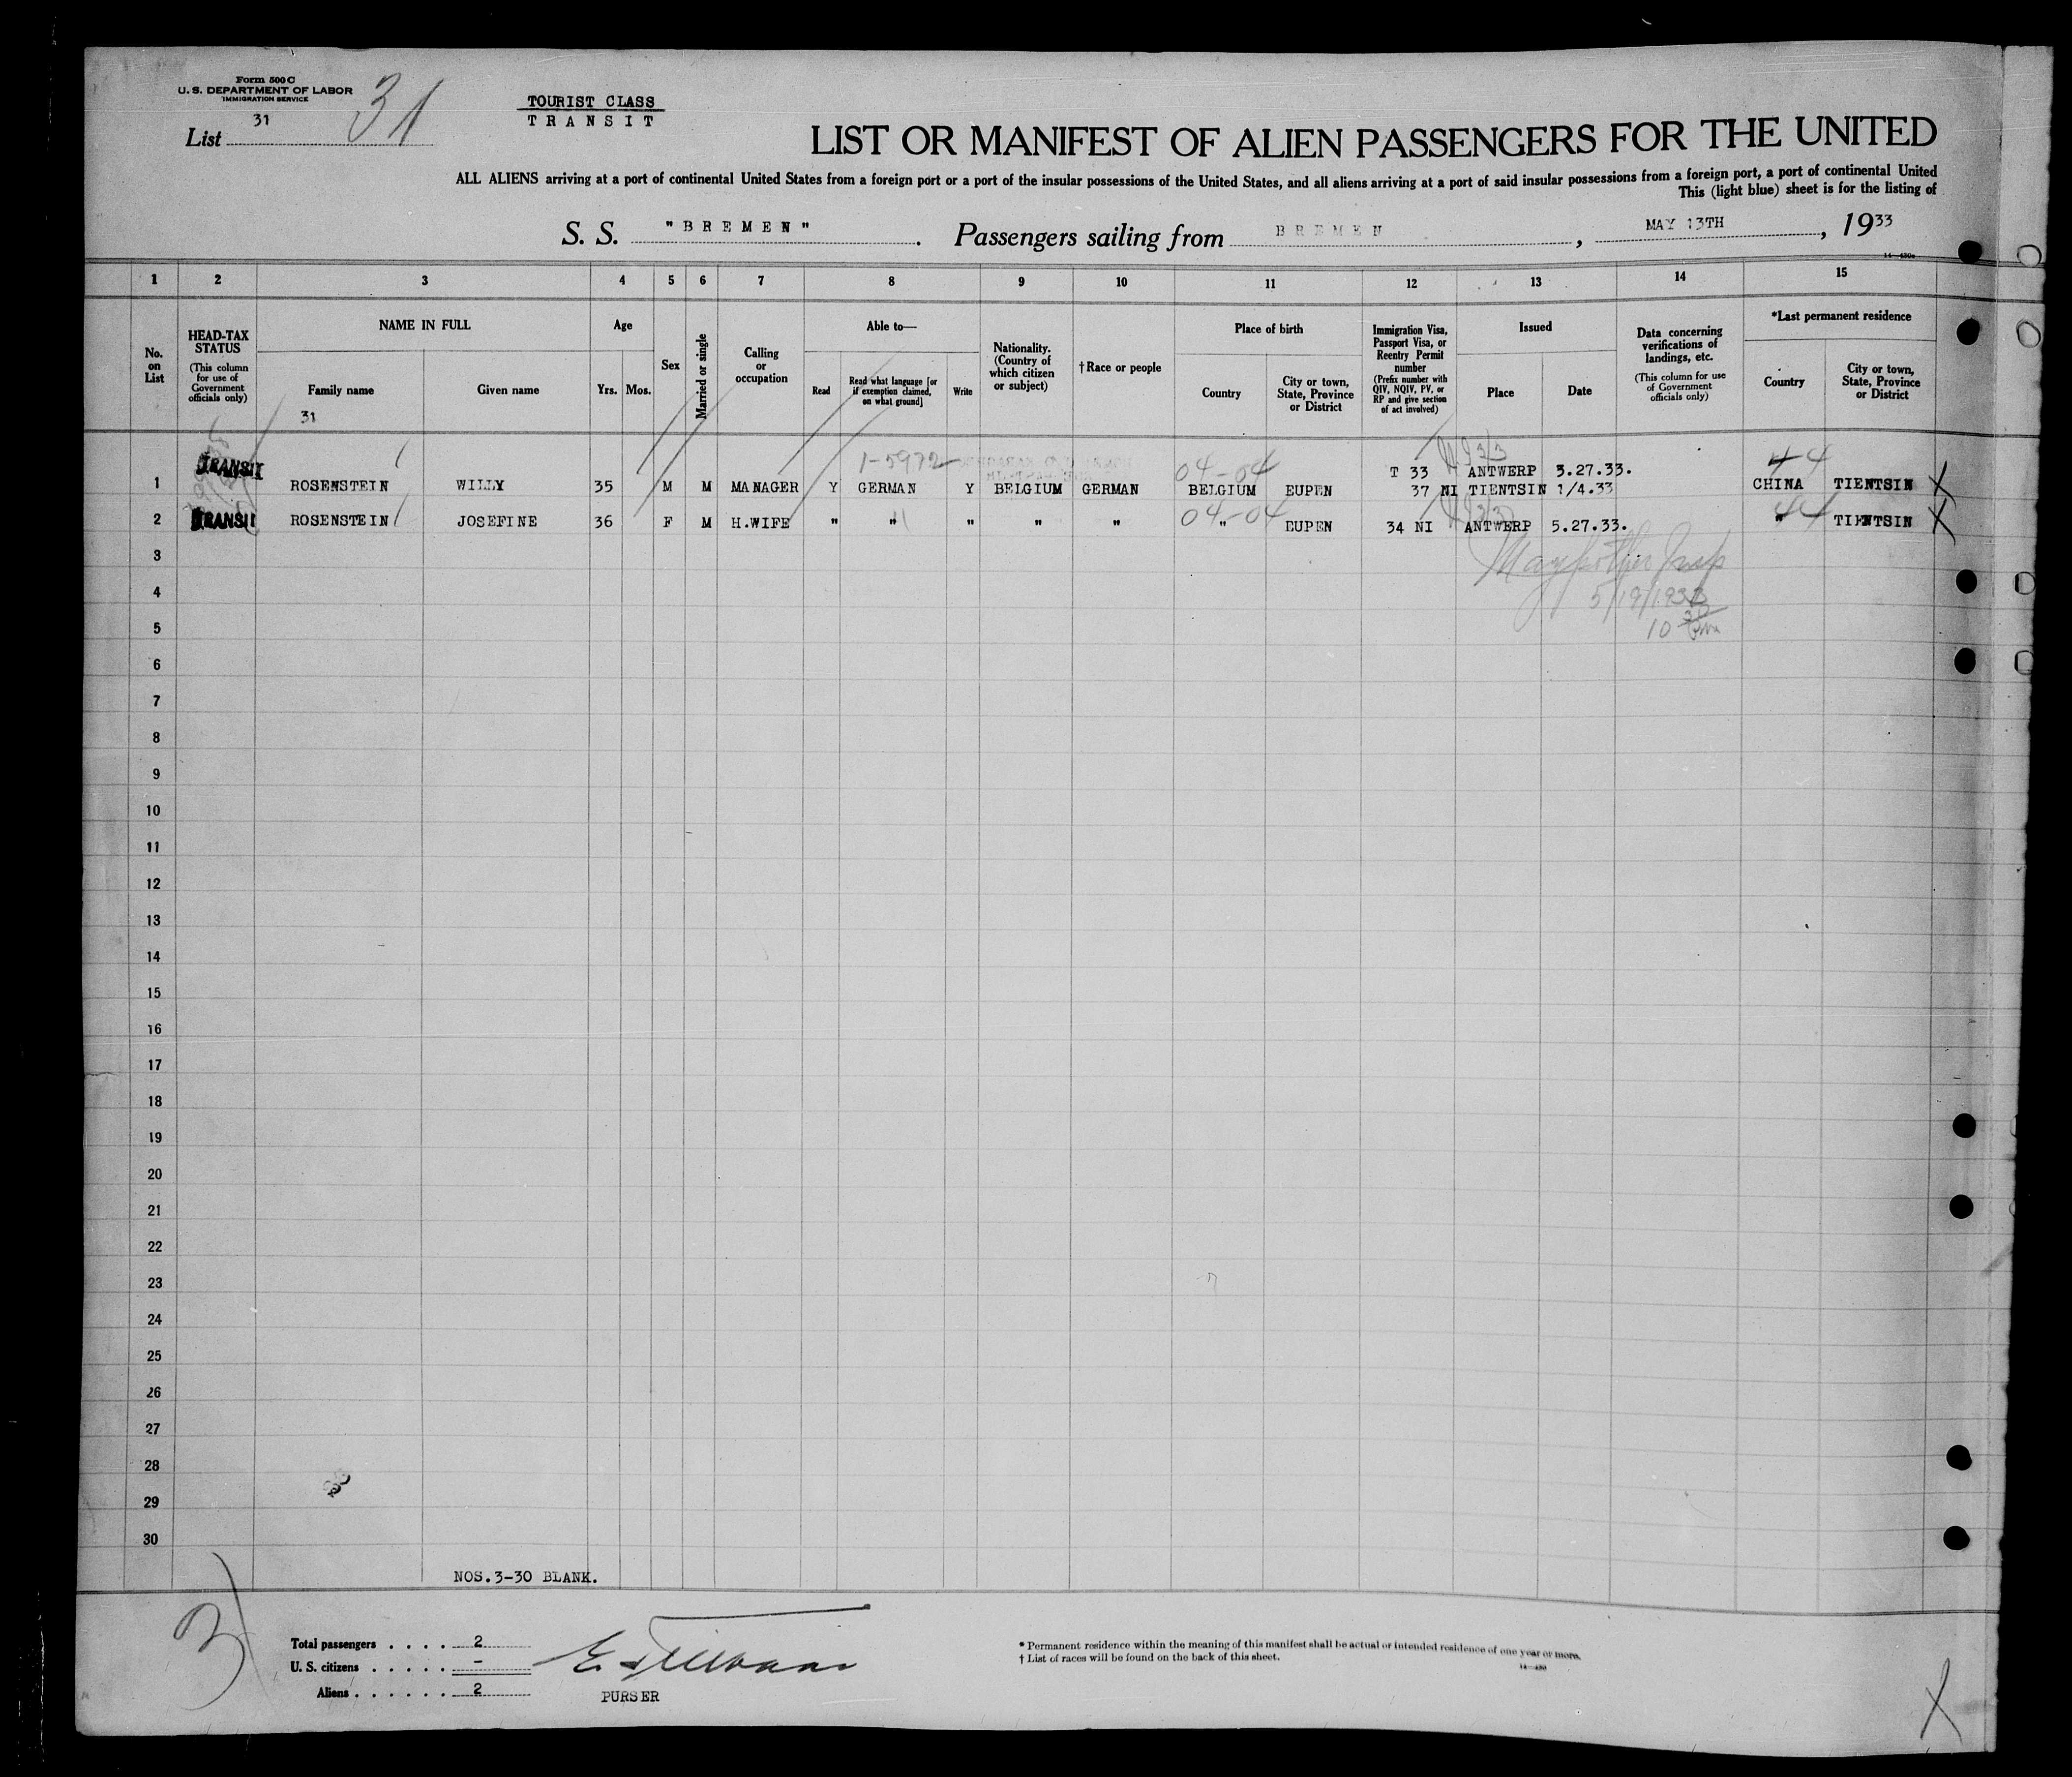 Form 500 C
U. S. DEPARTMENT OF LABOR
IMMIGRATION SERVICE
List 31
31
TOURIST CLASS
TRANSIT
LIST OR MANIFEST OF ALIEN PASSENGERS FOR THE UNITED
ALL ALIENS arriving at a port of continental United States from a foreign port or a port of the insular possessions of the United States, and all aliens arriving at a port of said insular possessions from a foreign port, a port of continental United
This (light blue) sheet is for the listing of
S. S. "BREMEN". Passengers sailing from BREMEN, MAY 13TH, 1933
1 2 3 4 5 6 7 8 9 10 11 12 13 14 15
No. on List
HEAD-TAX STATUS
(This column for use of Government officials only)
NAME IN FULL
Family name
31
Given name
Age
Yrs. Mos.
Sex
Married or single
Calling or occupation
Able to—
Read
Read what language [or if exemption claimed, on what ground]
Write
Nationality. (Country of which citizen or subject)
†Race or people
Place of birth
Country
City or town, State, Province or District
Immigration Visa, Passport Visa, or Reentry Permit number
(Prefix number with QIV, NQIV, PV, or RP and give section of act involved)
Issued
Place
Date
Data concerning verifications of landings, etc.
(This column for use of Government officials only)
*Last permanent residence
Country
City or town, State, Province or District
1-5972 04-04 T 33 ANTWERP 3.27.33. 44
1 TRANSIT ROSENSTEIN WILLY 35 M M MANAGER Y GERMAN Y BELGIUM GERMAN BELGIUM EUPEN 37 NI TIENTSIN 1/4.33 CHINA TIENTSIN X
04-04 44
2 TRANSIT ROSENSTEIN JOSEFINE 36 F M H.WIFE " " " " " " EUPEN 34 NI ANTWERP 5.27.33. " TIENTSIN X
3
4 5/19/1933
5 10
6
7
8
9
10
11
12
13
14
15
16
17
18
19
20
21
22
23
24
25
26
27
28
29
30
NOS.3-30 BLANK.
Total passengers . . . . 2
U. S. citizens . . . . . –
Aliens . . . . . . 2
PURSER
* Permanent residence within the meaning of this manifest shall be actual or intended residence of one year or more.
† List of races will be found on the back of this sheet.
X